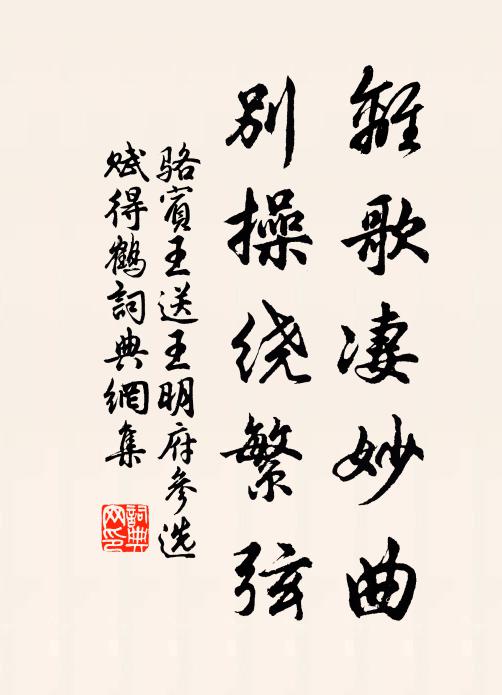 離歌凄妙曲
别操绕繁弦
骆賓王送王明府參选
赋得鶴詞典網集
詞典网印